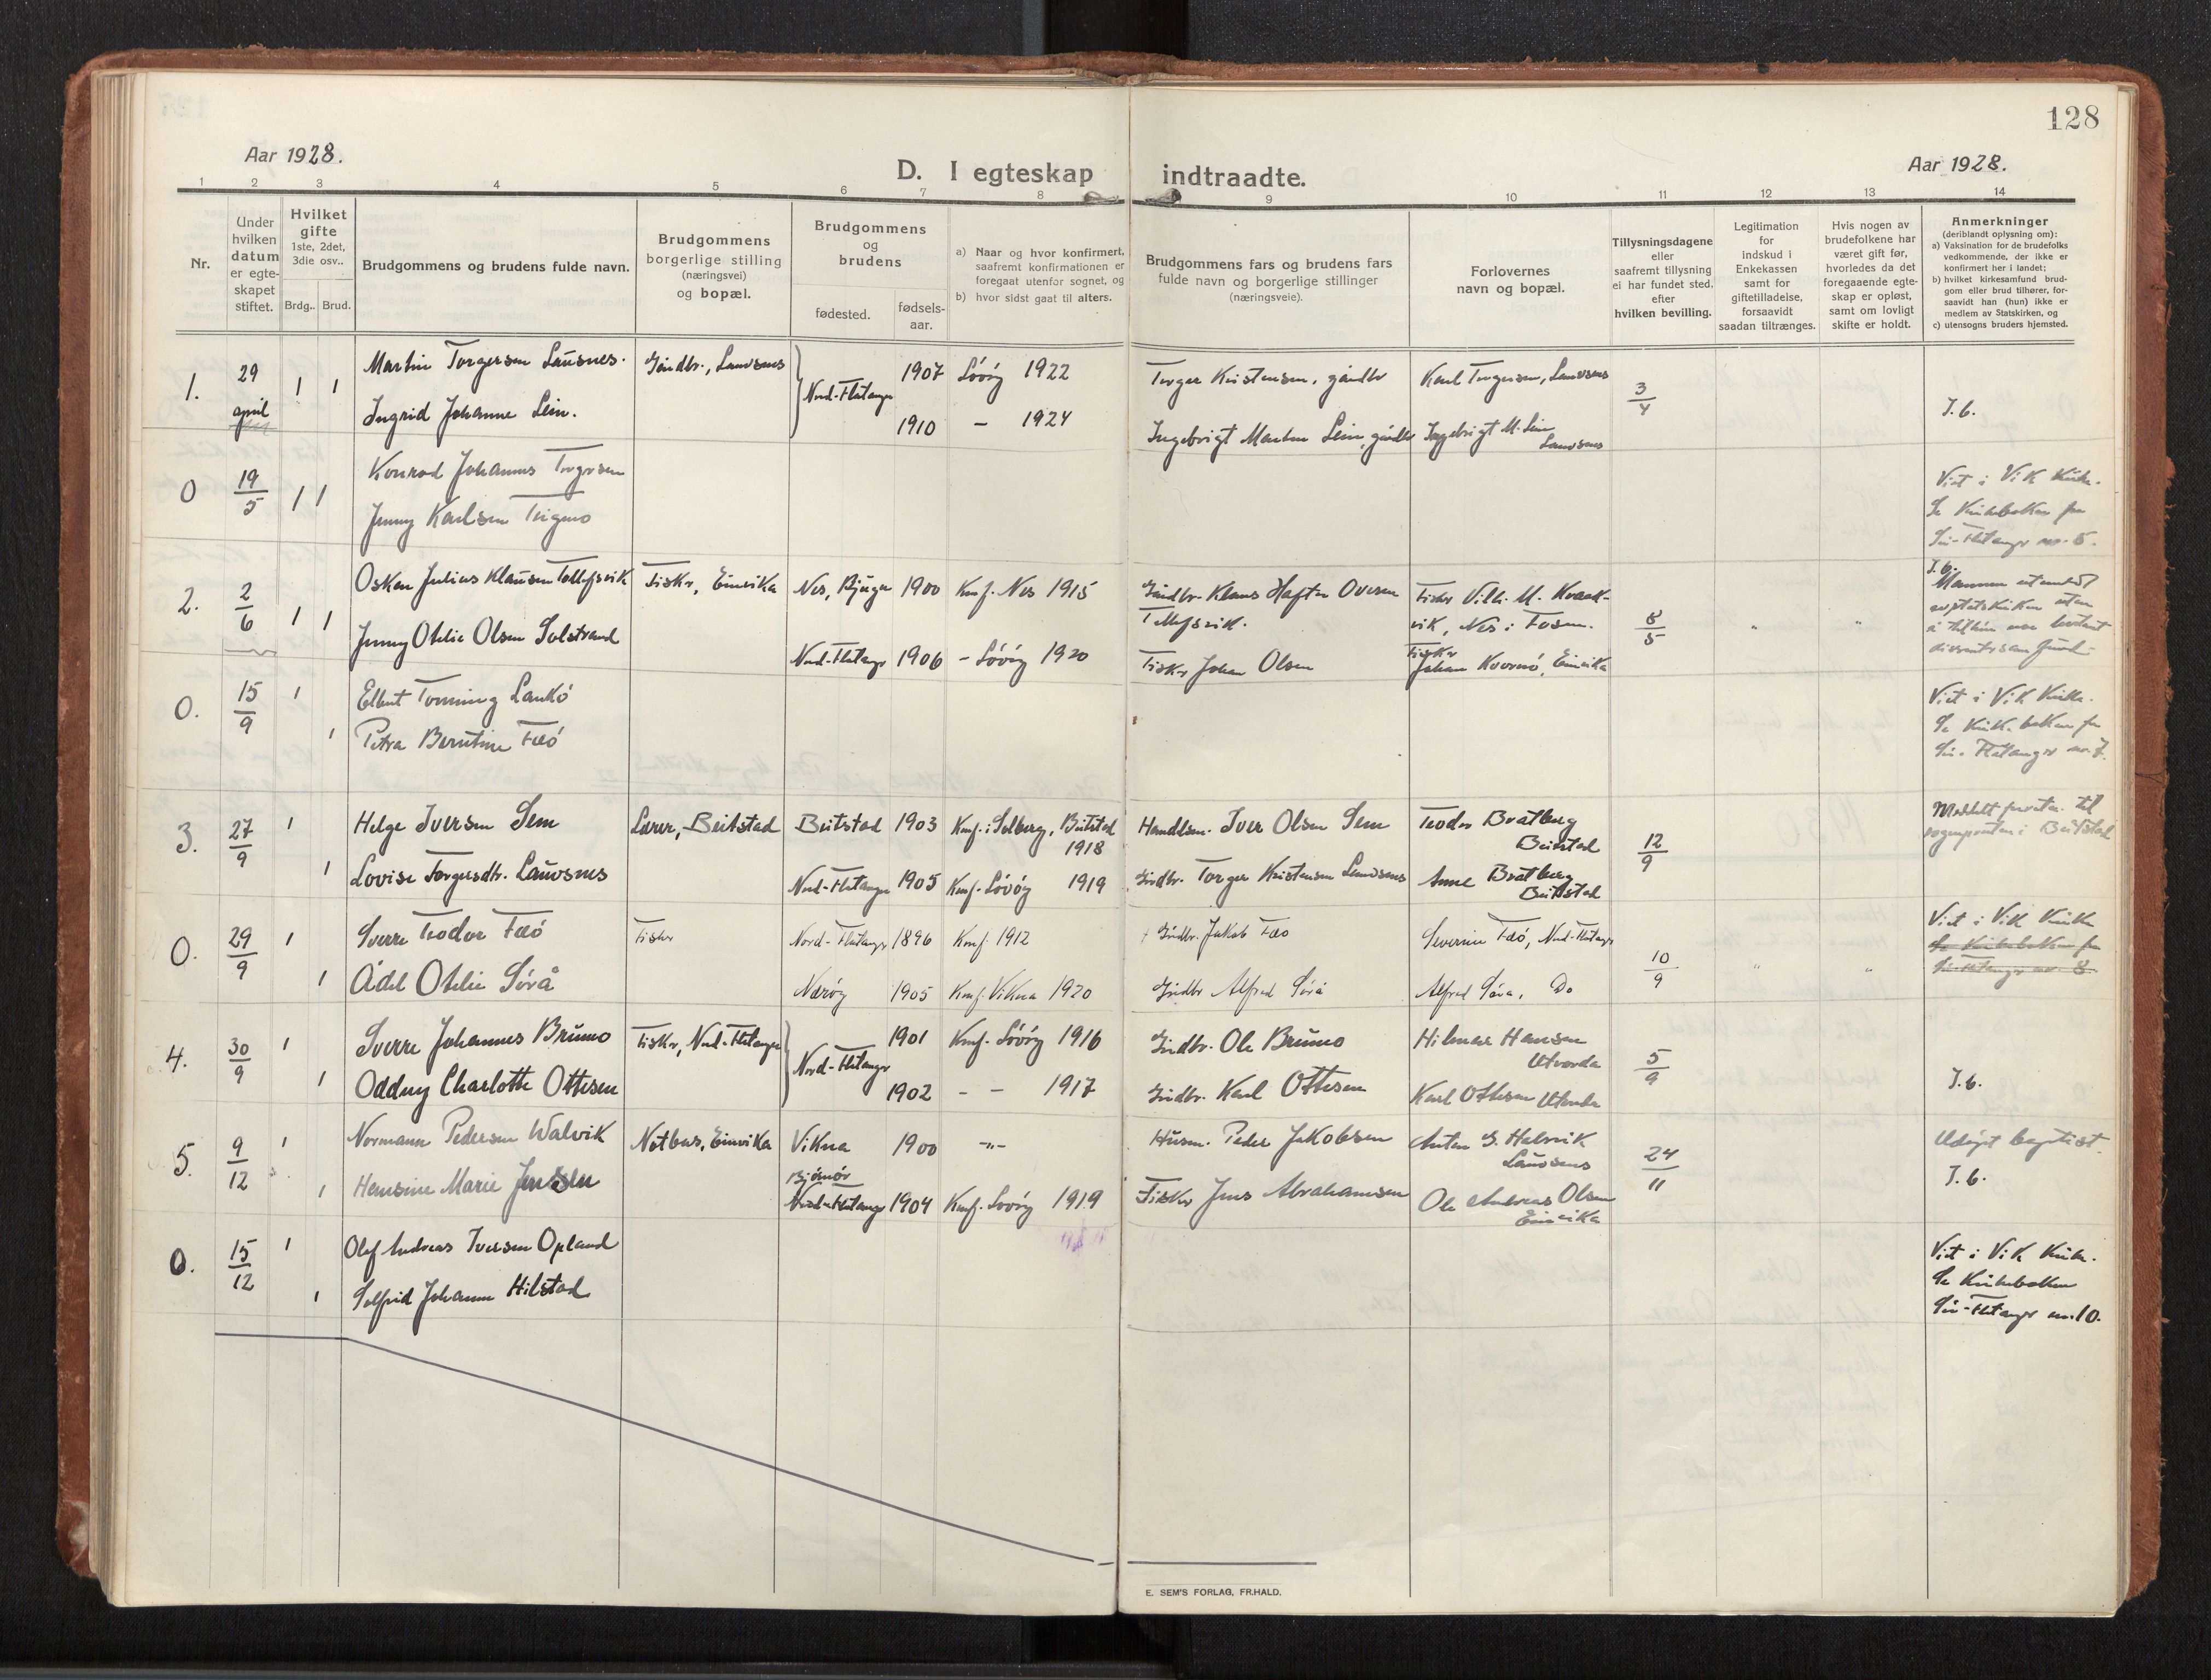 128
Aar 1928.
D. I egteskap indtraadte.
Aar 1928.
1 2 3 4 5 6 7 8 9 10 11 12 13 14
Nr.
Under hvilken datum er egte-skapet stiftet.
Hvilket gifte 1ste, 2det, 3die osv..
Brdg.. Brud.
Brudgommens og brudens fulde navn.
Brudgommens borgerlige stilling (næringsvei) og bopæl.
Brudgommens og brudens
fødested. fødsels-aar.
a) Naar og hvor konfirmert, saafremt konfirmationen er foregaat utenfor sognet, og
b) hvor sidst gaat til alters.
Brudgommens fars og brudens fars fulde navn og borgerlige stillinger (næringsveie).
Forlovernes navn og bopæl.
Tillysningsdagene eller saafremt tillysning ei har fundet sted, efter hvilken bevilling.
Legitimation for indskud i Enkekassen samt for giftetilladelse, forsaavidt saadan tiltrænges.
Hvis nogen av brudefolkene har været gift før, hvorledes da det foregaaende egte-skap er opløst, samt om lovligt skifte er holdt.
Anmerkninger (deriblandt oplysning om):
a) Vaksination for de brudefolks vedkommende, der ikke er konfirmert her i landet;
b) hvilket kirkesamfund brud-gom eller brud tilhører, for-saavidt han (hun) ikke er medlem av Statskirken, og
c) utensogns bruders hjemsted.
1. 29 april 1 1 Martin Torgersen Lausnes. Gaardbr., Lauvsnes Nord-Flatanger 1907 Løvøy 1922 Torger Kristensen, gårdbr Karl Torgersen, Lauvsnes 3/4
Ingrid Johanne Lein. 1910 – 1924 Ingebrigt Martin Lein, gårdbr Ingebrigt M. Lein Lauvsnes J.b.
0 19/5 1 1 Konrad Johannes Torgersen Viet i Vik Kirke.
Jenny Karlsen Se Kirkeboken for
Sør-Flatanger nr. 5.
2. 2/6 1 1 Oskar Julius Klausen Tellefsvik Fisker, Einvika Nes, Bjugn 1900 Konf. Nes 1915 Gårdbr. Klaus Hafto Ovesen Tellefsvik. Fisker Vilh. M. vik, Nes i Fosen. 8/5 " " J.b.
Jenny Otelie Olsen Solstrand Nord-Flatanger 1906 – Løvøy 1920 Fisker Johan Olsen Fisker Johan Kvernø, Einvika
0. 15/9 1 Elbert Torming Laukø Viet i Vik Kirke.
1 Petra Berntine Faø Se Kirkeboken for
Sør-Flatanger nr. 7.
3. 27/9 1 Helge Iversen Sem Lærer, Beitstad Beitstad 1903 Konf. i Solberg, Beitstad 1918 Handlsm. Iver Olsen Sem Teodor Bratberg Beitstad 12/9 Meddelt til sognepresten i Beitstad
1 Lovise Torgersdtr. Lauvsnes Nord-Flatanger 1905 Konf. Løvøy 1919 Gårdbr. Torger Kristensen Lauvsnes Anne Bratberg Beitstad
0. 29/9 1 Sverre Teodor Faø Fisker Nord-Flatanger 1896 Konf. 1912 † Gårdbr. Jakob Faø Severin Faø, Nord-Flatanger 10/9 " " Viet i Vik Kirke
1 Adel Otelie Sørå Nærøy 1905 Konf. Vikna 1920 Gårdbr Alfred Sørå Alfred Sørå, Do Se Kirkeboken for Sør-Flatanger nr. 8
4. 30/9 1 Sverre Johannes Brumo Fisker, Nord-Flatanger Nord-Flatanger 1901 Konf. Løvøy 1916 Gårdbr. Ole Brumo Hilmar Hansen Utvorda 5/9
1 Oddny Charlotte Ottesen 1902 – – 1917 Gårdbr. Karl Ottesen Karl Ottesen Utvorda J.b.
5. 9/12 1 Normann Pedersen Walvik Notbas, Einvika Vikna 1900 -"- Husm. Peder Jakobsen Anton G. Halvik Lauvsnes 24/11 Udøpt baptist.
1 Hansine Marie Jenssen Bjørnør Nord-Flatanger 1904 Konf. Løvøy 1919 Fisker Jens Abrahamsen Ole Andreas Olsen Einvika J.b.
0. 15/12 1 Olaf Andreas Iversen Opland Viet i Vik Kirke.
1 Solfrid Johanne Hilstad Se Kirkeboken
Sør-Flatanger nr. 10.
E. SEM'S FORLAG, FR.HALD.